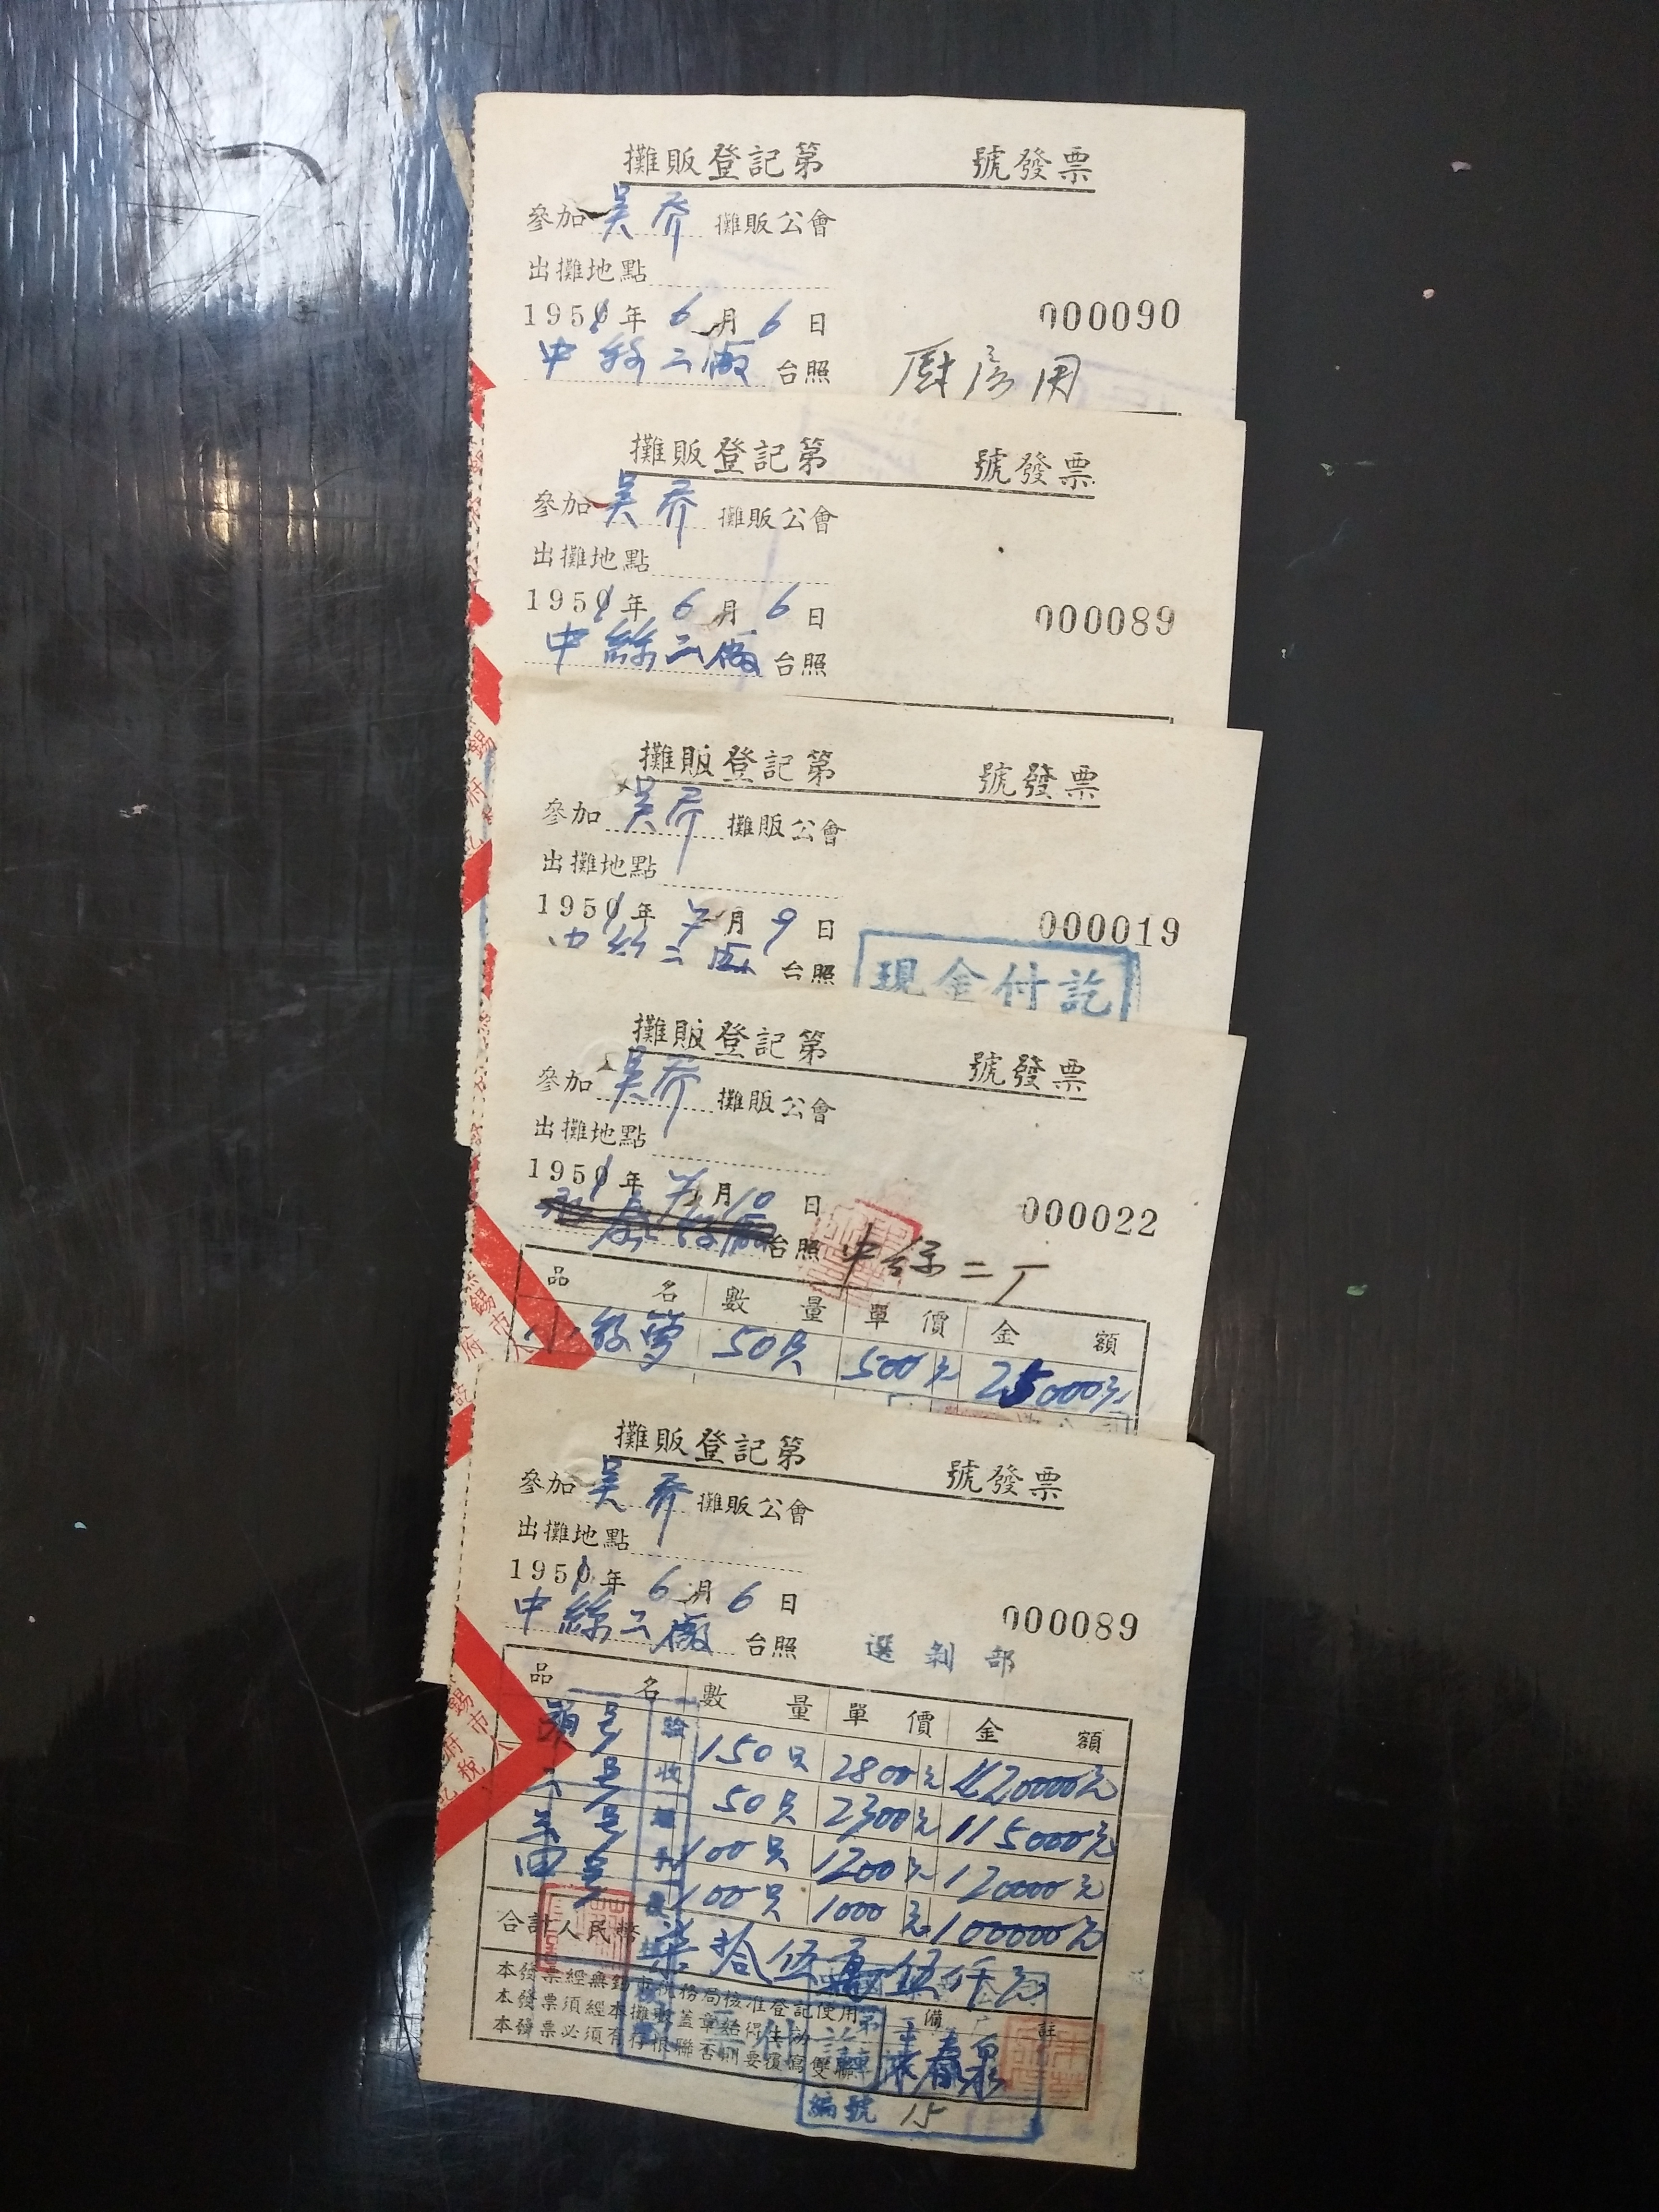 攤販登記第 號發票
參加 吴乔 攤販公會
出攤地點
1951年 6月6日
000090
中絲二廠 台照 厨房用
攤販登記第 號發票
參加 吴乔 攤販公會
出攤地點
1951年 6月6日
000089
中絲二廠 台照
攤販登記第 號發票
參加 吴乔 攤販公會
出攤地點
1951年 7月9日
000019
中絲二廠 台照
現金付訖
攤販登記第 號發票
參加 吴乔 攤販公會
出攤地點
1951年 7月10日
000022
台照 中絲二厂
品名 數量 單價 金額
50只 500元 25000元
攤販登記第 號發票
參加 吴乔 攤販公會
出攤地點
1951年 6月6日
000089
中絲二廠 台照 選剝部
品名 數量 單價 金額
頭号 150只 2800元 420000元
二号 50只 2300元 115000元
叁号 100只 1200元 120000元
四号 100只 1000元 100000元
合計人民幣 柒拾伍萬伍仟元
本發票經無錫市稅務局核准登記使用
本發票須經本攤販蓋章始得生効
本發票必須有存根聯否則要覆寫雙聯
備註
編號 15